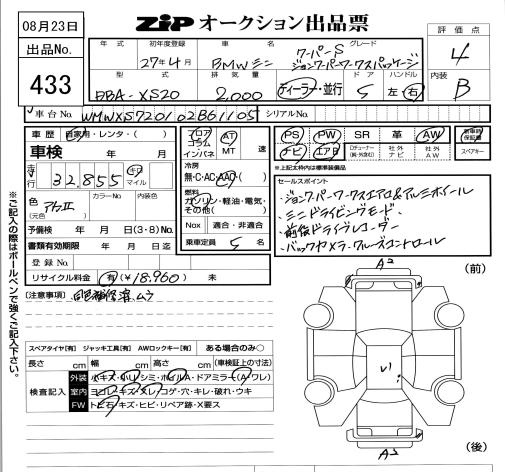 08月23日
ZIP オークション出品票
出品No.
433
評価点
4
内装
B
年式 初年度登録 車名 グレード
27年4月 BMWミニ クーパーS
ジョンクーパーワークスパッケージ
型式 排気量 ドア ハンドル
DBA-XS20 2,000 ディーラー・並行 5 左・右
車台No. WMWXS720102B61105 シリアルNo.
車歴 自家用・レンタ・( )
車検 年 月
走行 32,855 キロ マイル
色 (元色) カラーNo. 内装色
予備検 年 月 日(3・8)No.
書類有効期限 年 月 日迄
登録No.
リサイクル料金 有(¥18,960) 未
フロア コラム インパネ AT MT 速
冷房
無・C・AC・AAC・( )
燃料
ガソリン・軽油・電気・その他( )
Nox 適合・非適合
乗車定員 5 名
PS PW SR 革 AW 新車時保証書
ナビ エアB 社外ナビ 社外AW スペアキー
※上記太枠内は標準装備品
セールスポイント
・ジョンクーパーワークスエアロ&アルミホイール
・ミニドライビングモード
・前後ドライブレコーダー
・バックカメラ・クルーズコントロール
[注意事項]
スペアタイヤ[有] ジャッキ工具[有] AWロックキー[有] ある場合のみ○
長さ cm 幅 cm 高さ cm (車検証上の寸法)
検査記入
外装 小キズ・小凹・シミ・ホイルA・ドアミラー(A・ワレ)
室内 ヨゴレ・キズ・スレ・コゲ・穴・キレ・破れ・ウキ
FW トビ石・キズ・ヒビ・リペア跡・X要ス
※ご記入の際はボールペンで強くご記入下さい。
A2
(前)
U1
A2
(後)